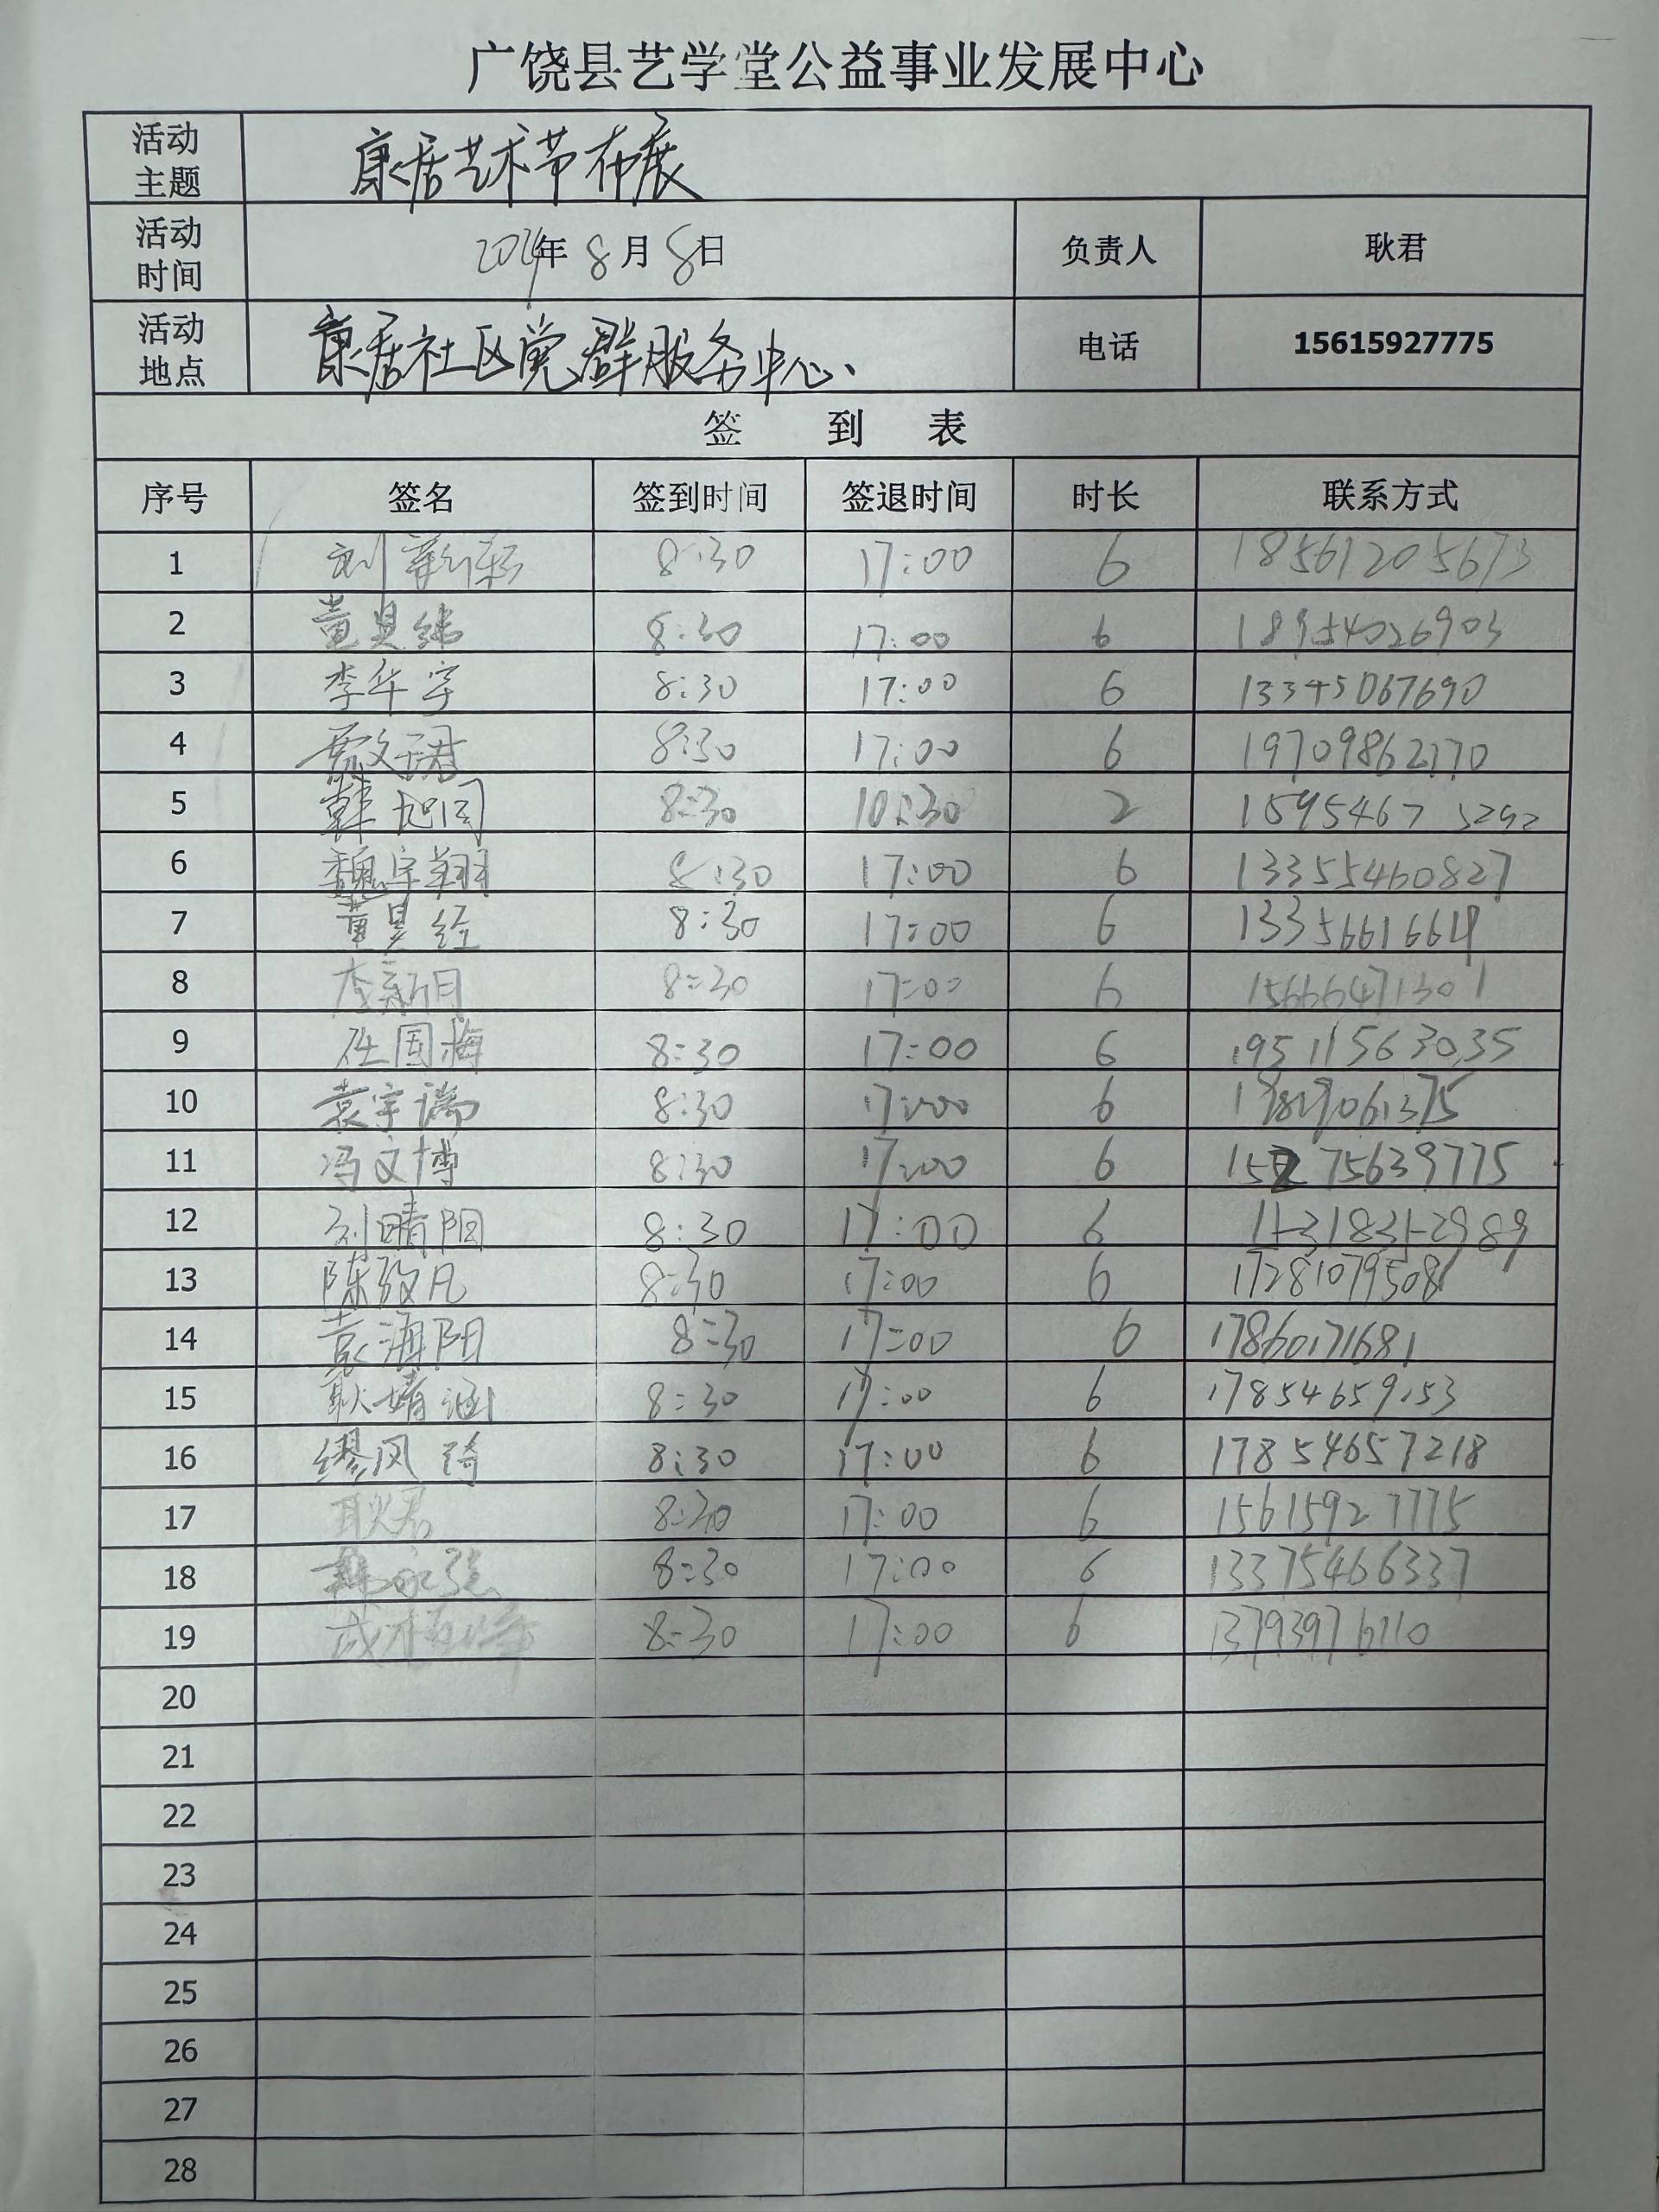 广饶县艺学堂公益事业发展中心
活动主题 康居艺术节布展
活动时间 2024年8月8日 负责人 耿君
活动地点 康居社区党群服务中心、 电话 15615927775
签 到 表
序号 签名 签到时间 签退时间 时长 联系方式
1 刘 8:30 17:00 6 18561205673
2 董昊纬 8:30 17:00 6 18954026903
3 李华宇 8:30 17:00 6 13345067690
4 贾文珺 8:30 17:00 6 19709862170
5 韩旭同 8:30 10:30 2 15954673292
6 魏宇翔 8:30 17:00 6 13355460827
7 董昊经 8:30 17:00 6
8 李新月 8:30 17:00 6 15666471301
9 任国梅 8:30 17:00 6 19511563035
10 袁宇瑞 8:30 17:00 6
11 冯文博 8:30 17:00 6 15275639775
12 刘晴阳 8:30 17:00 6
13 陈致凡 8:30 17:00 6 17281079508
14 袁海阳 8:30 17:00 6 17860171681
15 耿婧涵 8:30 17:00 6 17854659153
16 缪风琦 8:30 17:00 6 17854657218
17 耿君 8:30 17:00 6 15615927775
18 韩永强 8:30 17:00 6 13375466337
19 8:30 17:00 6 13793976110
20
21
22
23
24
25
26
27
28